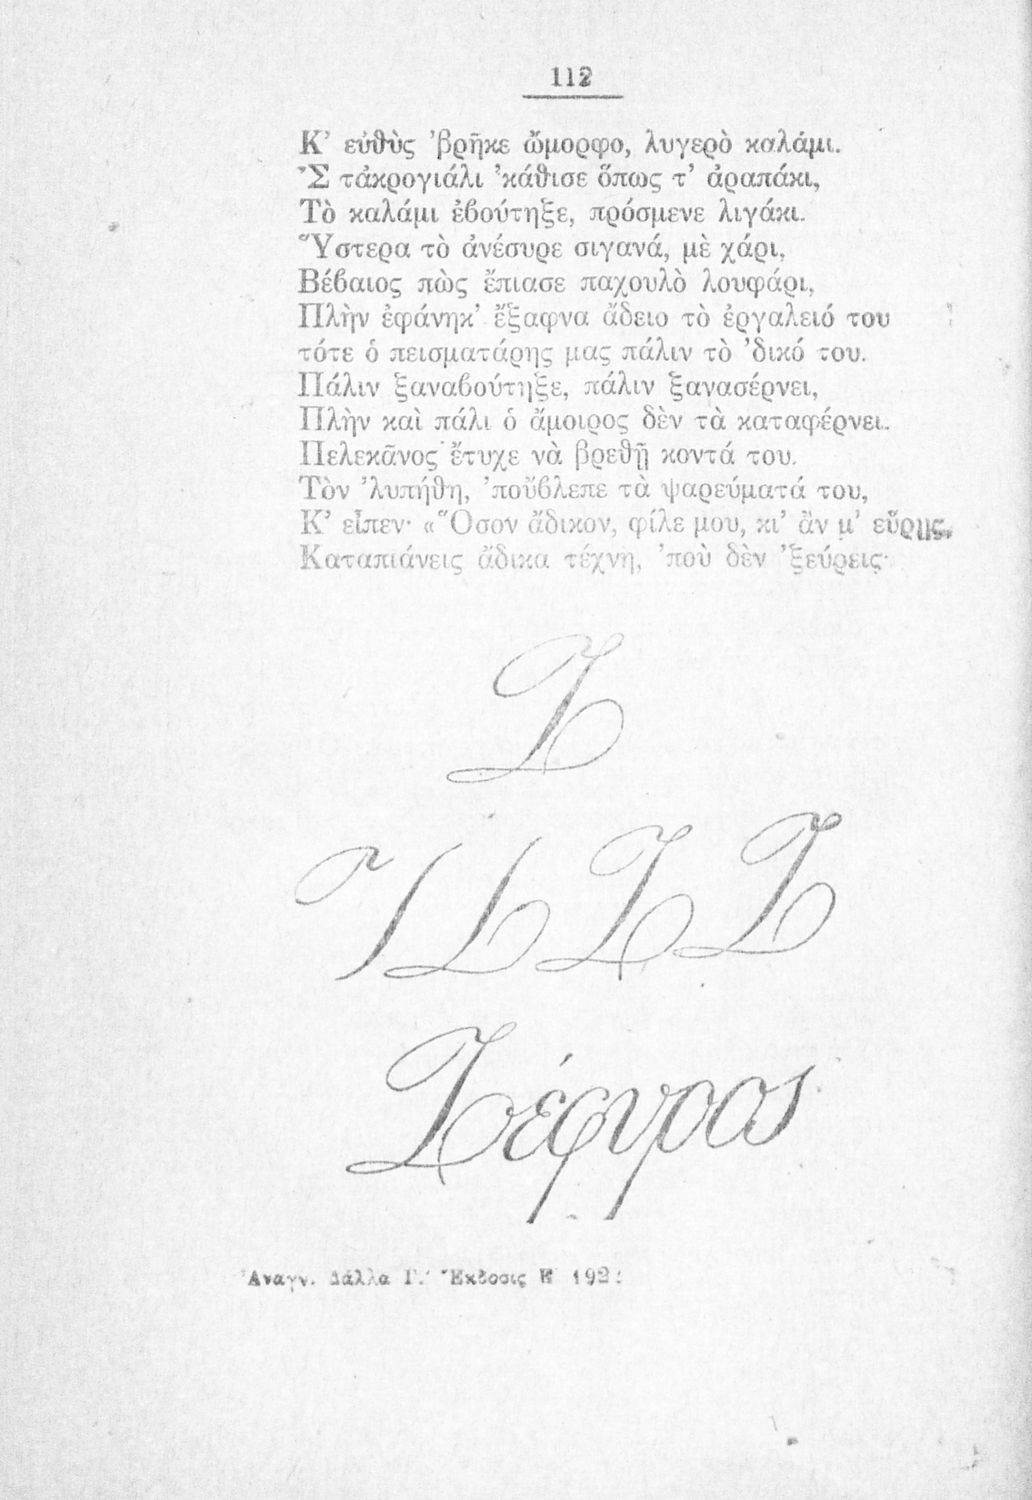 112
Κ' εὐθὺς 'βρῆκε ὤμορφο, λυγερὸ καλάμι.
Ἒς τἀκρογιάλι 'κάθισε ὅπως τ' ἀραπάκι,
Τὸ καλάμι ἐβούτηξε, πρόσμενε λιγάκι.
Ὕστερα τὸ ἀνέσυρε σιγανά, μὲ χάρι,
Βέβαιος πὼς ἔπιασε παχουλὸ λουφάρι,
Πλὴν ἐφάνηκ' ἔξαφνα ἄδειο τὸ ἐργαλειό του
τότε ὁ πεισματάρης μας πάλιν τὸ 'δικό του.
Πάλιν ξαναβούτηξε, πάλιν ξανασέρνει,
Πλὴν καὶ πάλι ὁ ἄμοιρος δὲν τὰ καταφέρνει.
Πελεκᾶνος ἔτυχε νὰ βρεθῇ κοντά του.
Τὸν 'λυπήθη, 'ποὔβλεπε τὰ ψαρεύματά του,
Κ' εἶπεν· «Ὅσον ἄδικον, φίλε μου, κι' ἂν μ' εὕρῃς,
Καταπιάνεις ἄδικα τέχνη, 'ποὺ δὲν 'ξεύρεις·
Ζ
Ζ Ζ
Ζέφυρος
Ἀναγν. Δάλλα Γ.' Ἔκδοσις Ε